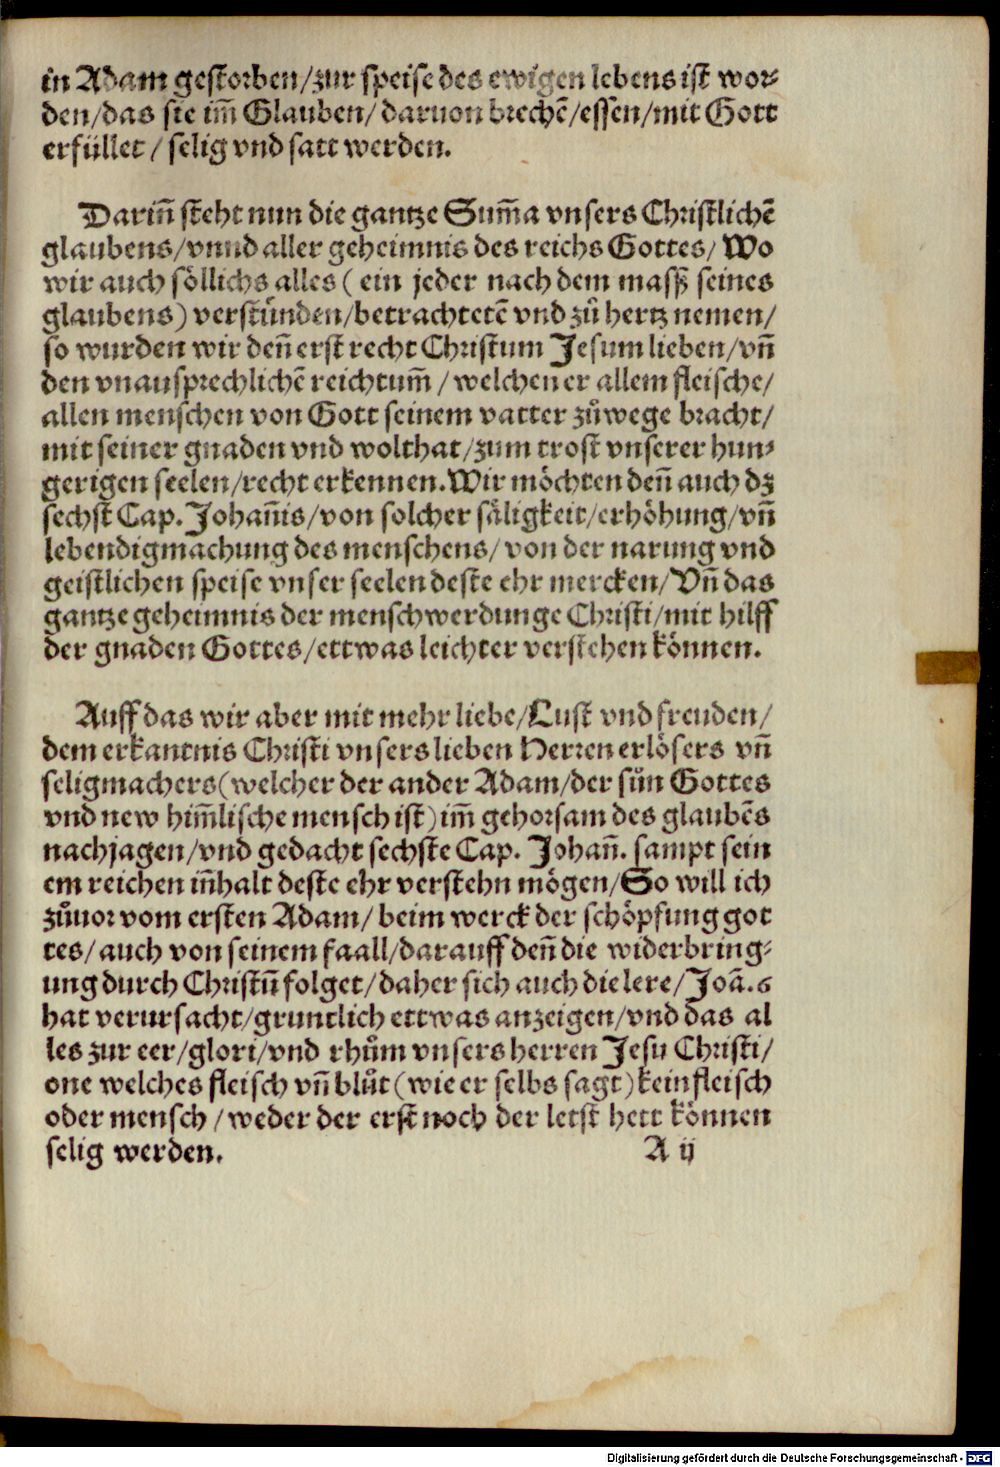 in Adam gestorben/zur speise des ewigen lebens ist wor⸗
den/das sie im̃ Glauben/daruon brechẽ/essen/mit Gott
erfüllet/ selig vnd satt werden.
Darin̄ steht nun die gantze Sum̃a vnsers Christlichẽ
glaubens/vnnd aller geheimnis des reichs Gottes/Wo
wir auch söllichs alles (ein jeder nach dem massz seines
glaubens) verstünden/betrachtetẽ vnd zů hertz nemen/
so wurden wir den̄ erst recht Christum Jesum lieben/vn̄
den vnausprechlichẽ reichtum̃/welchen er allem fleische/
allen menschen von Gott seinem vatter zůwege bracht/
mit seiner gnaden vnd wolthat/zum trost vnserer hun⸗
gerigen seelen/recht erkennen. Wir möchten den̄ auch dz
sechst Cap. Johan̄is/von solcher säligkeit/erhöhung/vn̄
lebendigmachung des menschens/von der narung vnd
geistlichen speise vnser seelen deste ehr mercken/Vn̄ das
gantze geheimnis der menschwerdunge Christi/mit hilff
der gnaden Gottes/ettwas leichter verstehen können.
Auff das wir aber mit mehr liebe/Lust vnd freuden/
dem erkantnis Christi vnsers lieben Herren erlösers vn̄
seligmachers (welcher der ander Adam/der sůn Gottes
vnd new him̃lische mensch ist) im̃ gehorsam des glaubẽs
nachjagen/vnd gedacht sechste Cap. Johan̄. sampt sein
em reichen in̄halt deste ehr verstehn mögen/So will ich
zůuor vom ersten Adam/beim werck der schöpfung got
tes/auch von seinem faall/darauff den̄ die widerbring⸗
ung durch Christū folget/daher sich auch die lere/Joā. 6
hat verursacht/gruntlich ettwas anzeigen/vnd das al
les zur eer/glori/vnd rhům vnsers herren Jesu Christi/
one welches fleisch vn̄ blůt (wie er selbs sagt) kein fleisch
oder mensch/weder der erst noch der letst hett können
selig werden. A ij
Digitalisierung gefördert durch die Deutsche Forschungsgemeinschaft - DFG